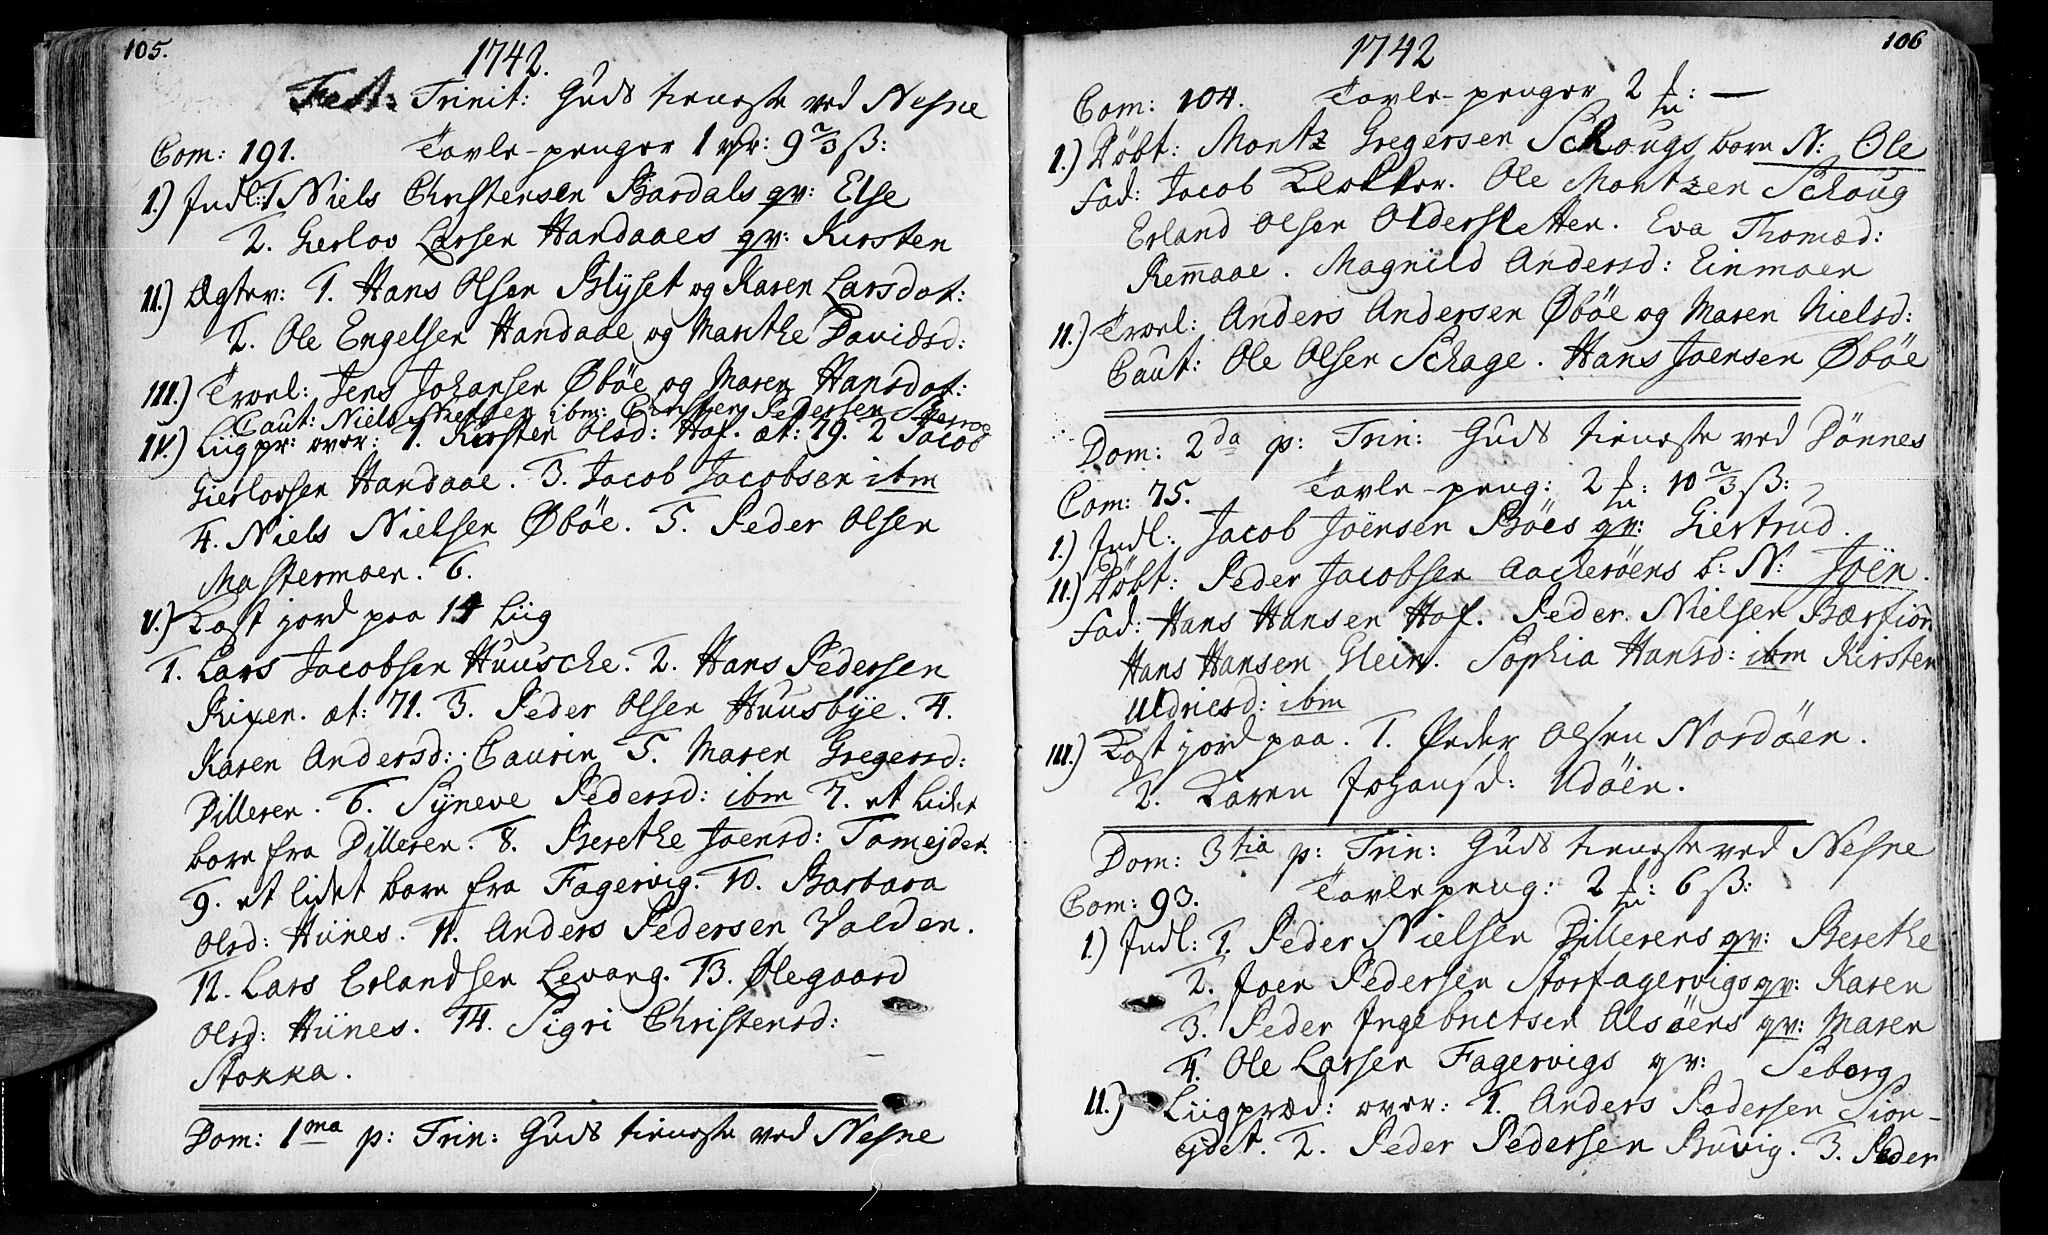 105.
1742.
Fest: Trinit: Guds tieneste ved Nesne
Com: 191. Tavle-penger 1 rdr: 9 2/3 ß:
1.) Indl: 1 Niels Christensen Bardals qv: Else
2. Gierlov Larsen Handaaes qv: Kirsten
11.) Ægtev: 1. Hans Olsen Blyset og Karen Larsdot:
2. Ole Engelsen Handaae og Marthe Davidsd:
111.) Trool: Jens Johansen Øbøe og Maren Hansdot:
Caut: Niels ibm: Christen Pedersen
1V.) Liigpr: over: 1. Kirsten Olsd: Hof. æt: 79. 2 Jacob
Gierlovsen Handaae. 3. Jacob Jacobsen ibm
4. Niels Nielsen Øbøe. 5. Peder Olsen
Mastermoen. 6.
V.) Kast jord paa 14 Liig
1. Lars Jacobsen Huusche. 2. Hans Pedersen
Rixen. æt: 71. 3. Peder Olsen Huusbye. 4.
Karen Andersd: Caurin 5. Maren Gregersd:
Dilleren. 6. Syneve Pedersd: ibm 7. et lidet
barn fra Dilleren. 8. Berethe Joensd: Tomejdet.
9. et lidet barn fra Fagervig. 10. Barbara
Olsd: Hünes. 11. Anders Pedersen Valden.
12. Lars Erlandsen Levang. 13. Ølegaard
Olsd: Hünes. 14. Sigri Christensd:
Stokka.
Dom: 1ma p: Trin: Guds tieneste ved Nesne
106
1742
Com: 104. Tavle-penger 2 : —
1.) Døbt: Montz Gregersen Schougs barn N: Ole
Fad: Jacob Klokker. Ole Montzen Schoug
Erland Olsen Oldersletten. Eva Thomæd:
Remaae. Magnild Andersd: Einmoen
11.) Trool: Anders Andersen Øbøe og Maren Nielsd:
Caut: Ole Olsen Schage. Hans Joensen Øbøe
Dom: 2da p: Trin: Guds tieneste ved Dönnes
Com: 75. Tavle-peng: 2 : 10 2/3 ß:
1.) Indl: Jacob Joënsen Böes qv: Giertrud.
11.) Döbt: Peder Jacobsen Aacherøens b: N: Joën.
Fad: Hans Hansen Hof. Peder Nielsen Bærfion
Hans Hansen Glein. Sophia Hansd: ibm Kirsten
Uldricsd: ibm
111.) Kast jord paa. 1. Peder Olsen Nordöen.
2. Karen Johansd: Udöen.
Dom: 3tia p: Trin: Guds tieneste ved Nesne
Com: 93. Tavlepeng: 2 : 6 ß:
1.) Indl: 1. Peder Nielsen Dillerens qv: Berethe
2. Joen Pedersen Storfagervigs qv: Karen
3. Peder Ingebrictsen Alsöens qv: Maren
4. Ole Larsen Fagervigs qv: Seborg
11.) Liigpræd: over: 1. Anders Pedersen Sion-
ejdet. 2. Peder Pedersen Buvig. 3. Peder